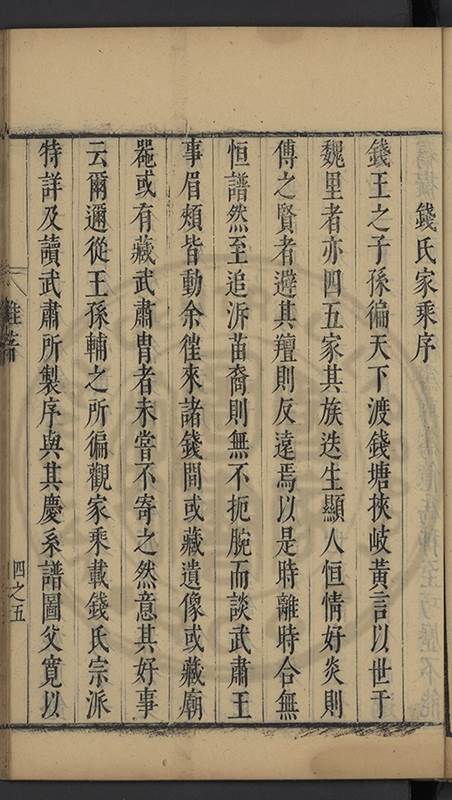 錢氏家乘序
錢王之子孫徧天下渡錢塘挾岐黃言以世于
魏里者亦四五家其族迭生顯人恒情好炎則
傅之賢者避其羶則反遠焉以是時離時合無
恒譜然至追泝苗裔則無不扼腕而談武肅王
事眉頰皆動余徃來諸錢間或藏遺像或藏廟
甗或有藏武肅胄者未嘗不寄之然意其好事
云爾邇從王孫輔之所徧觀家乘載錢氏宗派
特詳及讀武肅所製序與其慶系譜圖父寬以
雜著
四之五